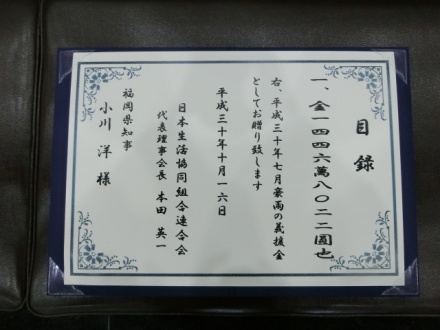 目録
一、金一四四六萬八〇二二圓也
右、平成三十年七月豪雨の義援金
としてお贈り致します
平成三十年十月一六日
日本生活協同組合連合会
代表理事会長 本田 英一
福岡県知事
小川 洋 様